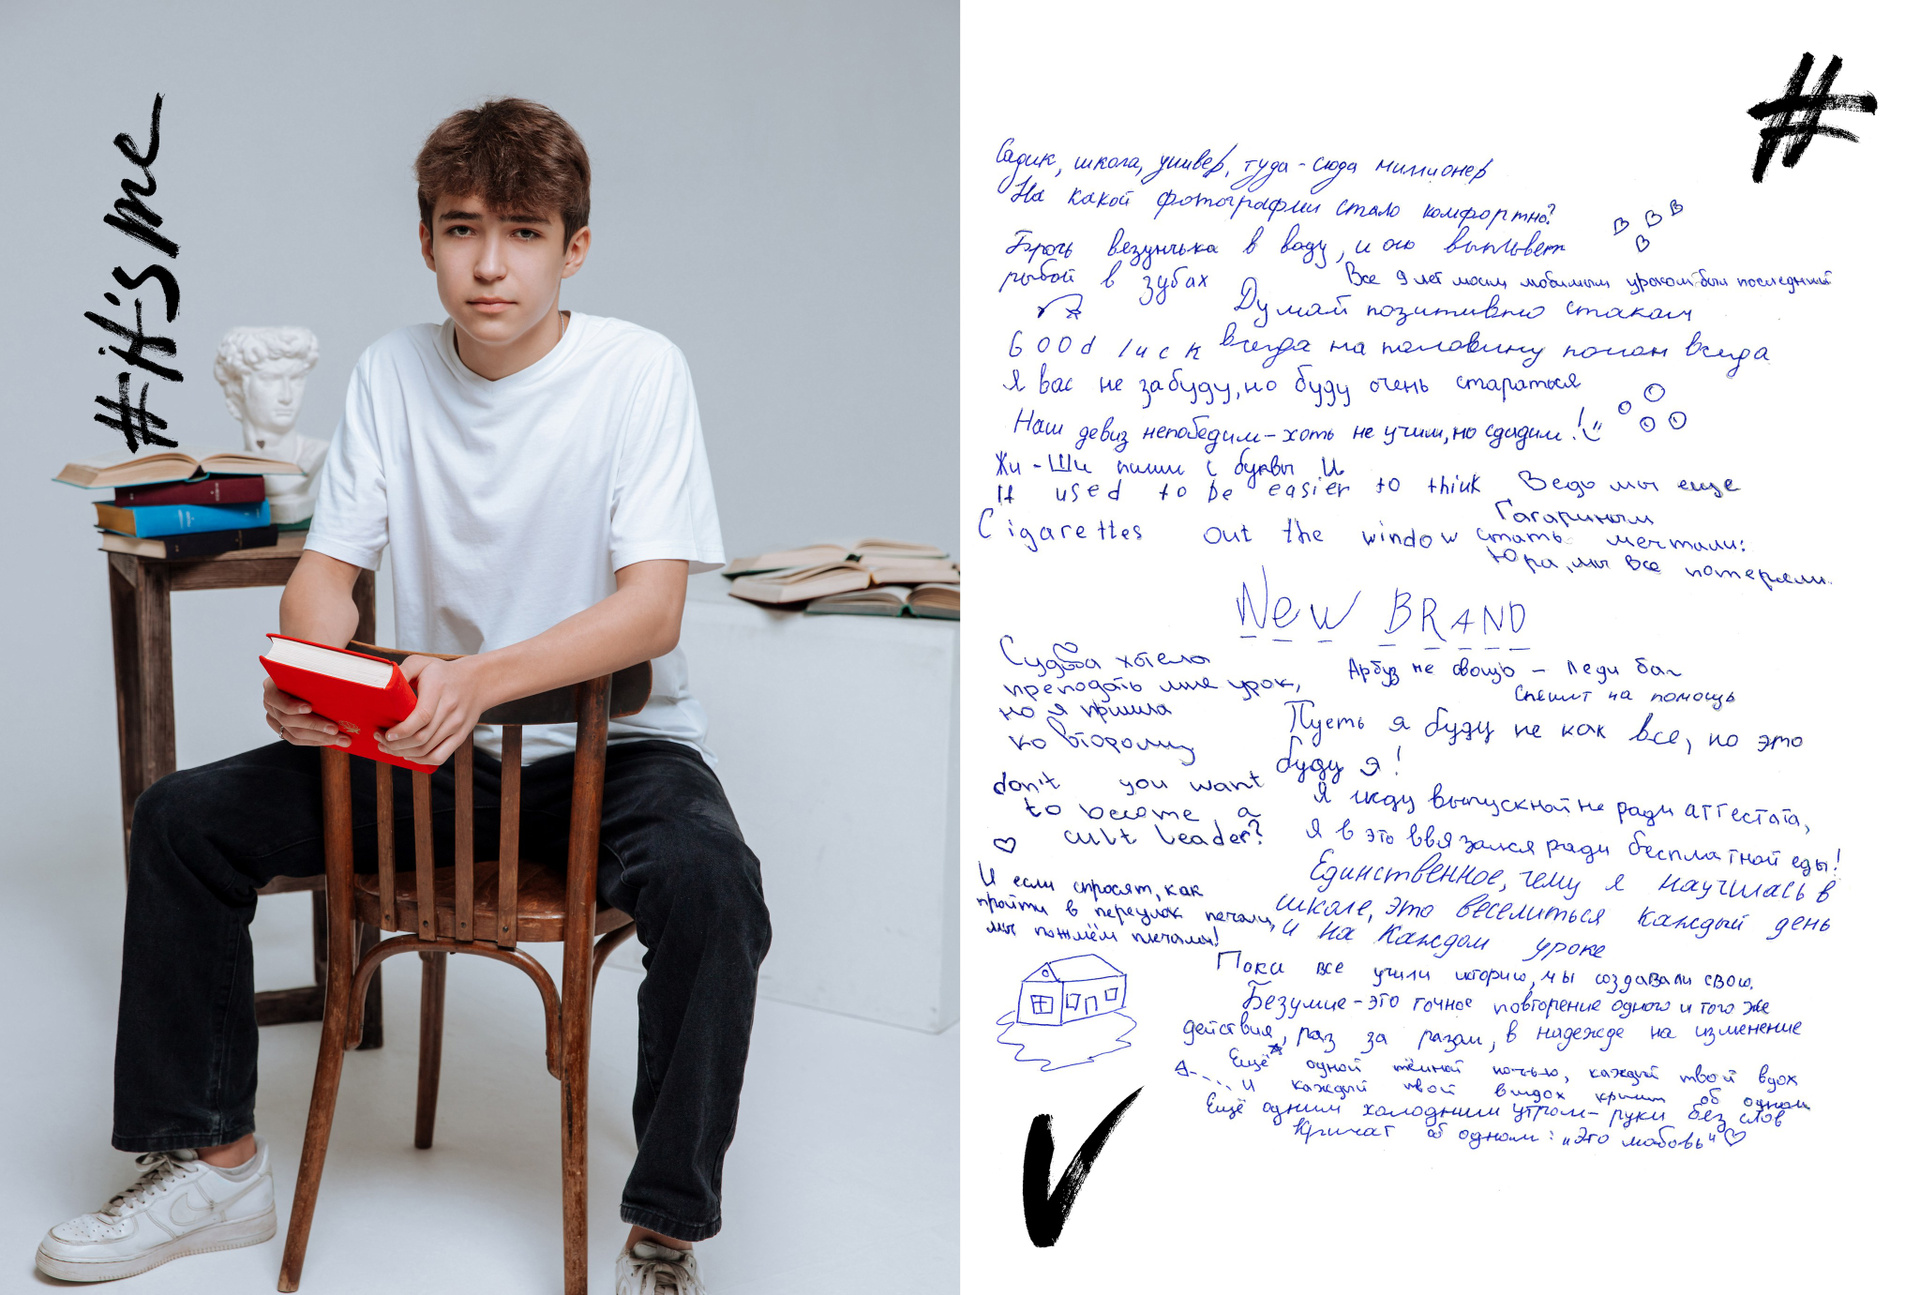 #it's me
#
Садик, школа, универ, туда-сюда миллионер
На какой фотографии стало комфортно?
Брось везунчика в воду, и он выплывет
рыбой в зубах
Все 9 лет моим любимым уроком был последний
Думай позитивно стакан
Good luck всегда на половину полон всегда
Я вас не забуду, но буду очень стараться
Наш девиз непобедим - хоть не учим, но сдадим!
Жи-Ши пиши с буквы И
It used to be easier to think
Cigarettes out the window
Ведь мы еще
Гагариным
стать мечтали:
Юра, мы все потеряли.
New BRAND
Судьба хотела
преподать мне урок,
но я пришла
ко второму
Арбуз не овощь - Леди баг
спешит на помощь
Пусть я буду не как все, но это
буду я!
don't you want
to become a
cult leader?
Я иду выпускной не ради аттестата,
Я в это ввязался ради бесплатной еды!
Единственное, чему я научилась в
школе, это веселиться каждый день
и на каждом уроке
И если спросят, как
пройти в переулок печали,
мы пожмём плечами!
Пока все учили историю, мы создавали свою.
Безумие - это точное повторение одного и того же
действия, раз за разом, в надежде на изменение
Ещё одной тёмной ночью, каждый твой вдох
и каждый твой выдох кричит об одном
Ещё одним холодным утром - руки без слов
Кричат об одном: "Это любовь"